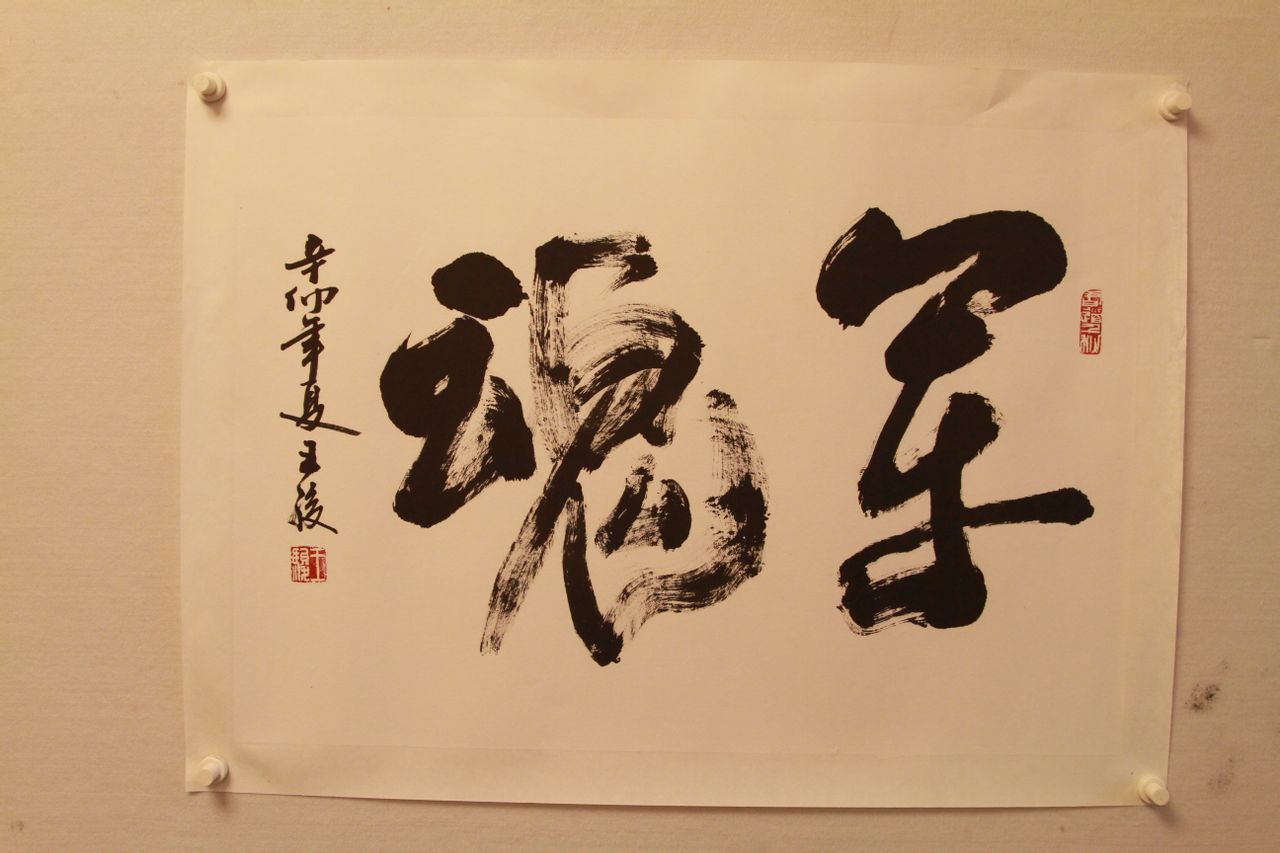 军魂
辛卯年夏王